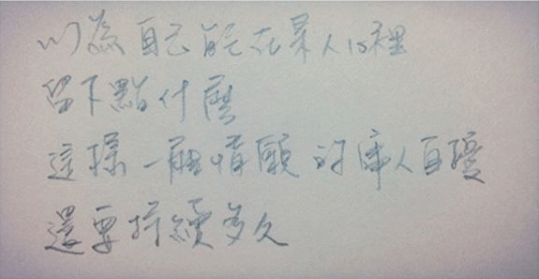 以為自己能在某人心裡
留下點什麼
這樣一廂情願的庸人自擾
還要持續多久